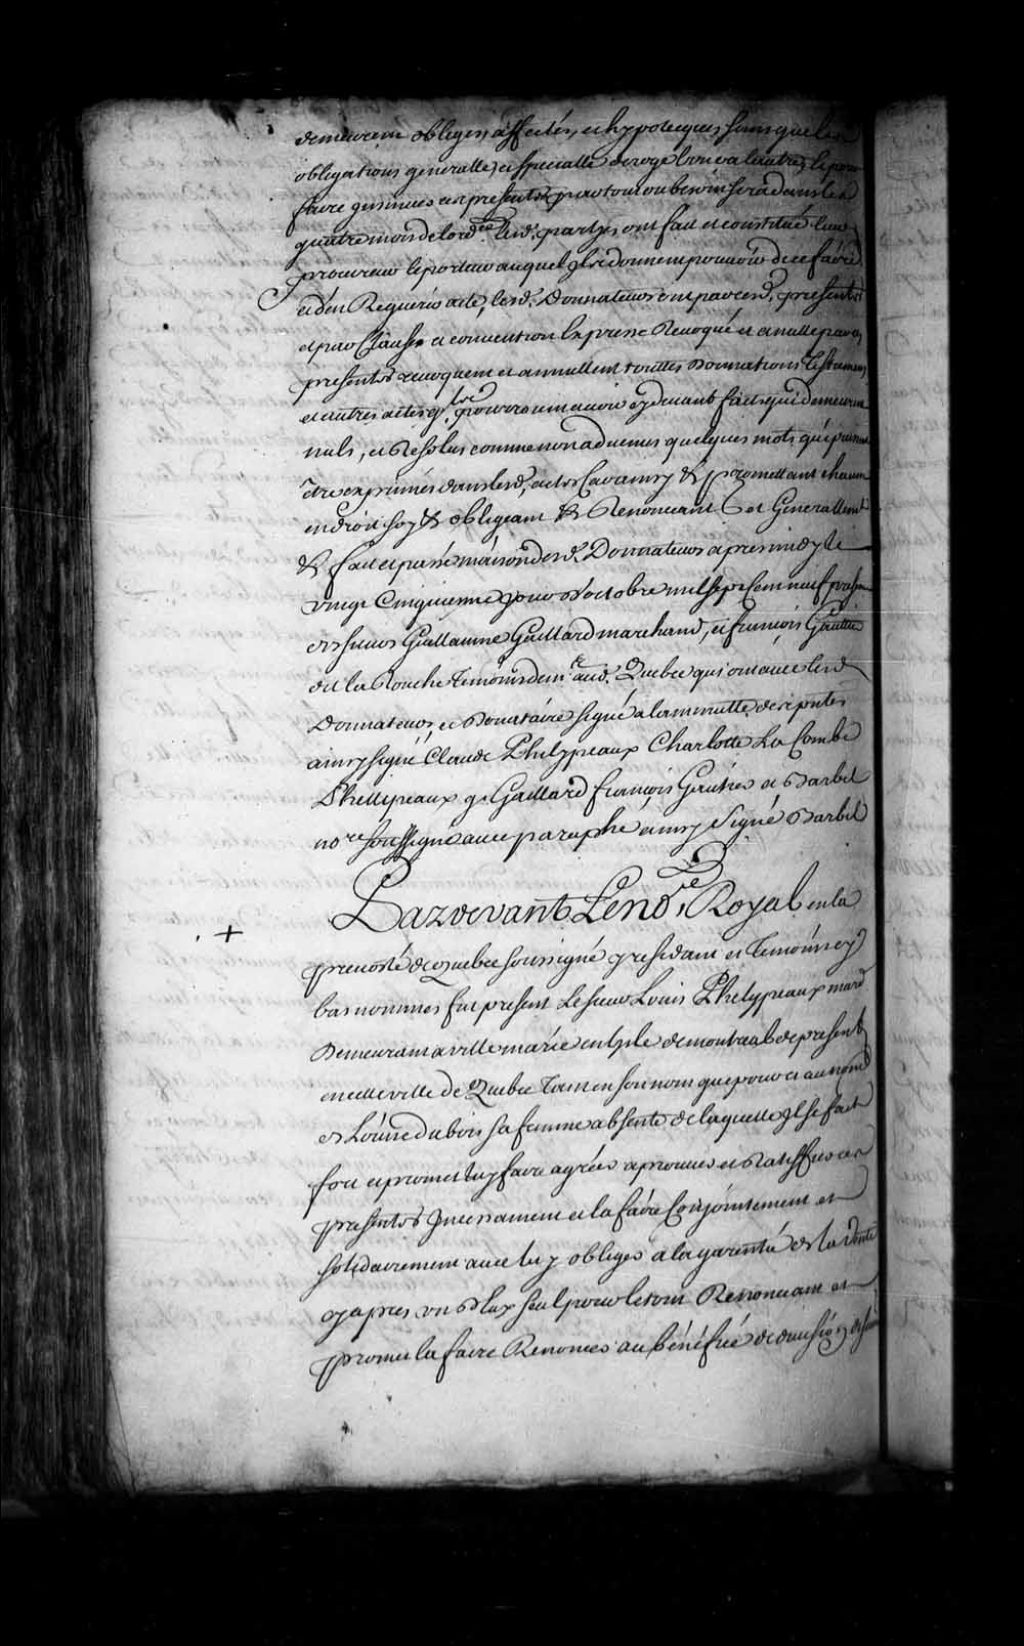 demeurent obligés, affectés, et hypotecqués, sans que les
obligations generalle, et speciale deroge l'une a l'autre, et pour
faire insinuer ces presentes par tout ou besoin sera dans les
quatre mois de lordce. lesd. partyes ont fait et constitué leur
procureur le porteur auquel ils donnent pouvoir de ce faire
et d'en Requerir acte, lesd. Donnateurs ont par cesd. presentes
et par Clause et convention Expresse Revoqué et annullé par ces
presentes revoquent et annullent touttes Donnations Testamens
et autres actes qu'ils pourroient avoir cy devant faits qui demeurent
nuls, et Resolus comme non advenus quelques mots qui puissent
être exprimés dans lesd. actes Car ainsy & promettant chacun
endroit soy & obligeant & Renonceant & et Generallement
& fait et passé maison desd. Donnateurs apres midy le
vingt Cinquieme jour d'octobre mil sept Cent neuf presence
des sieurs Guillaume Gaillard marchand, et françois Gautier
dit la Rouche Temoins demt. aud. Quebec qui ont avec lesd
Donnateurs et Donnataire signé a la minutte des pntes
ainsy signé Claude Phelypeaux Charlotte La Combe
Phellypeaux g. Gaillard françois Gautier et Barbel
nore soussigné avec paraphe ainsy Signé Barbel
Pardevant Le nore. Royal en la
prevosté de Quebec soussigné y residant et Temoins cy
bas nommés fut present Le sieur Louis Phelypeaux marcd.
Demeurant a ville marie en l'isle de montreal de present
en cette ville de Quebec Tant en son nom que pour et au nom
de Loüise dubois sa femme absente de laquelle il se fait
fort et promet luy faire agréer aprouver et Ratiffier ces
presentes Incessament et la faire Conjointement et
solidairement avec luy obliger a la garentie de la Vente
cy apres, un d'Eux seul pour le tout Renonceant et
promet la faire Renoncer au bénéfice de division,